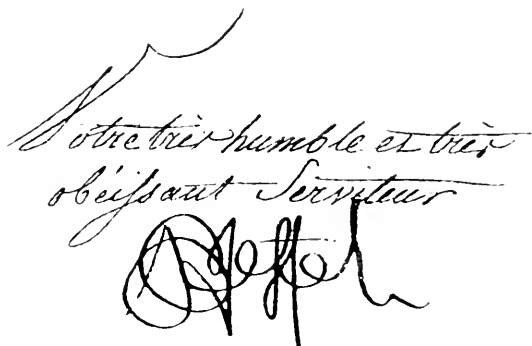 Votre très humble et très
obéissant Serviteur
Pfeffel